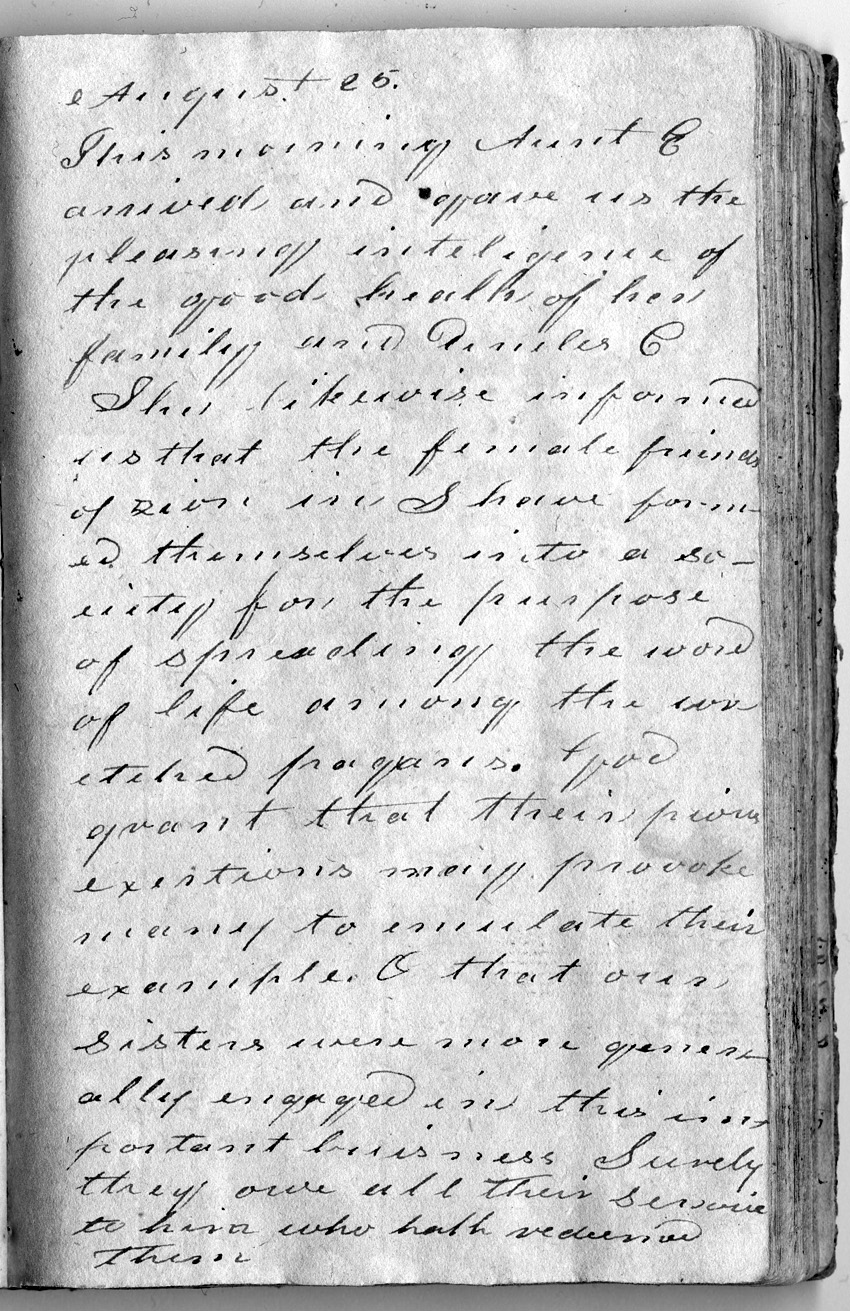 August 25.
This morning Aunt C
arrived and gave us the
pleasing inteligence of
the good health of her
family and Uncles C
She likewise informed
us that the female friends
of zion in S have form-
ed themselves into a so-
ciety for the purpose
of spreading the word
of life among the wr
etched pagans. God
grant that their pious
exertions may provoke
many to emulate their
example. O that our
sisters were more gener
ally engaged in this im
portant buisness Surely
they owe all their service
to him who hath redeemed
them